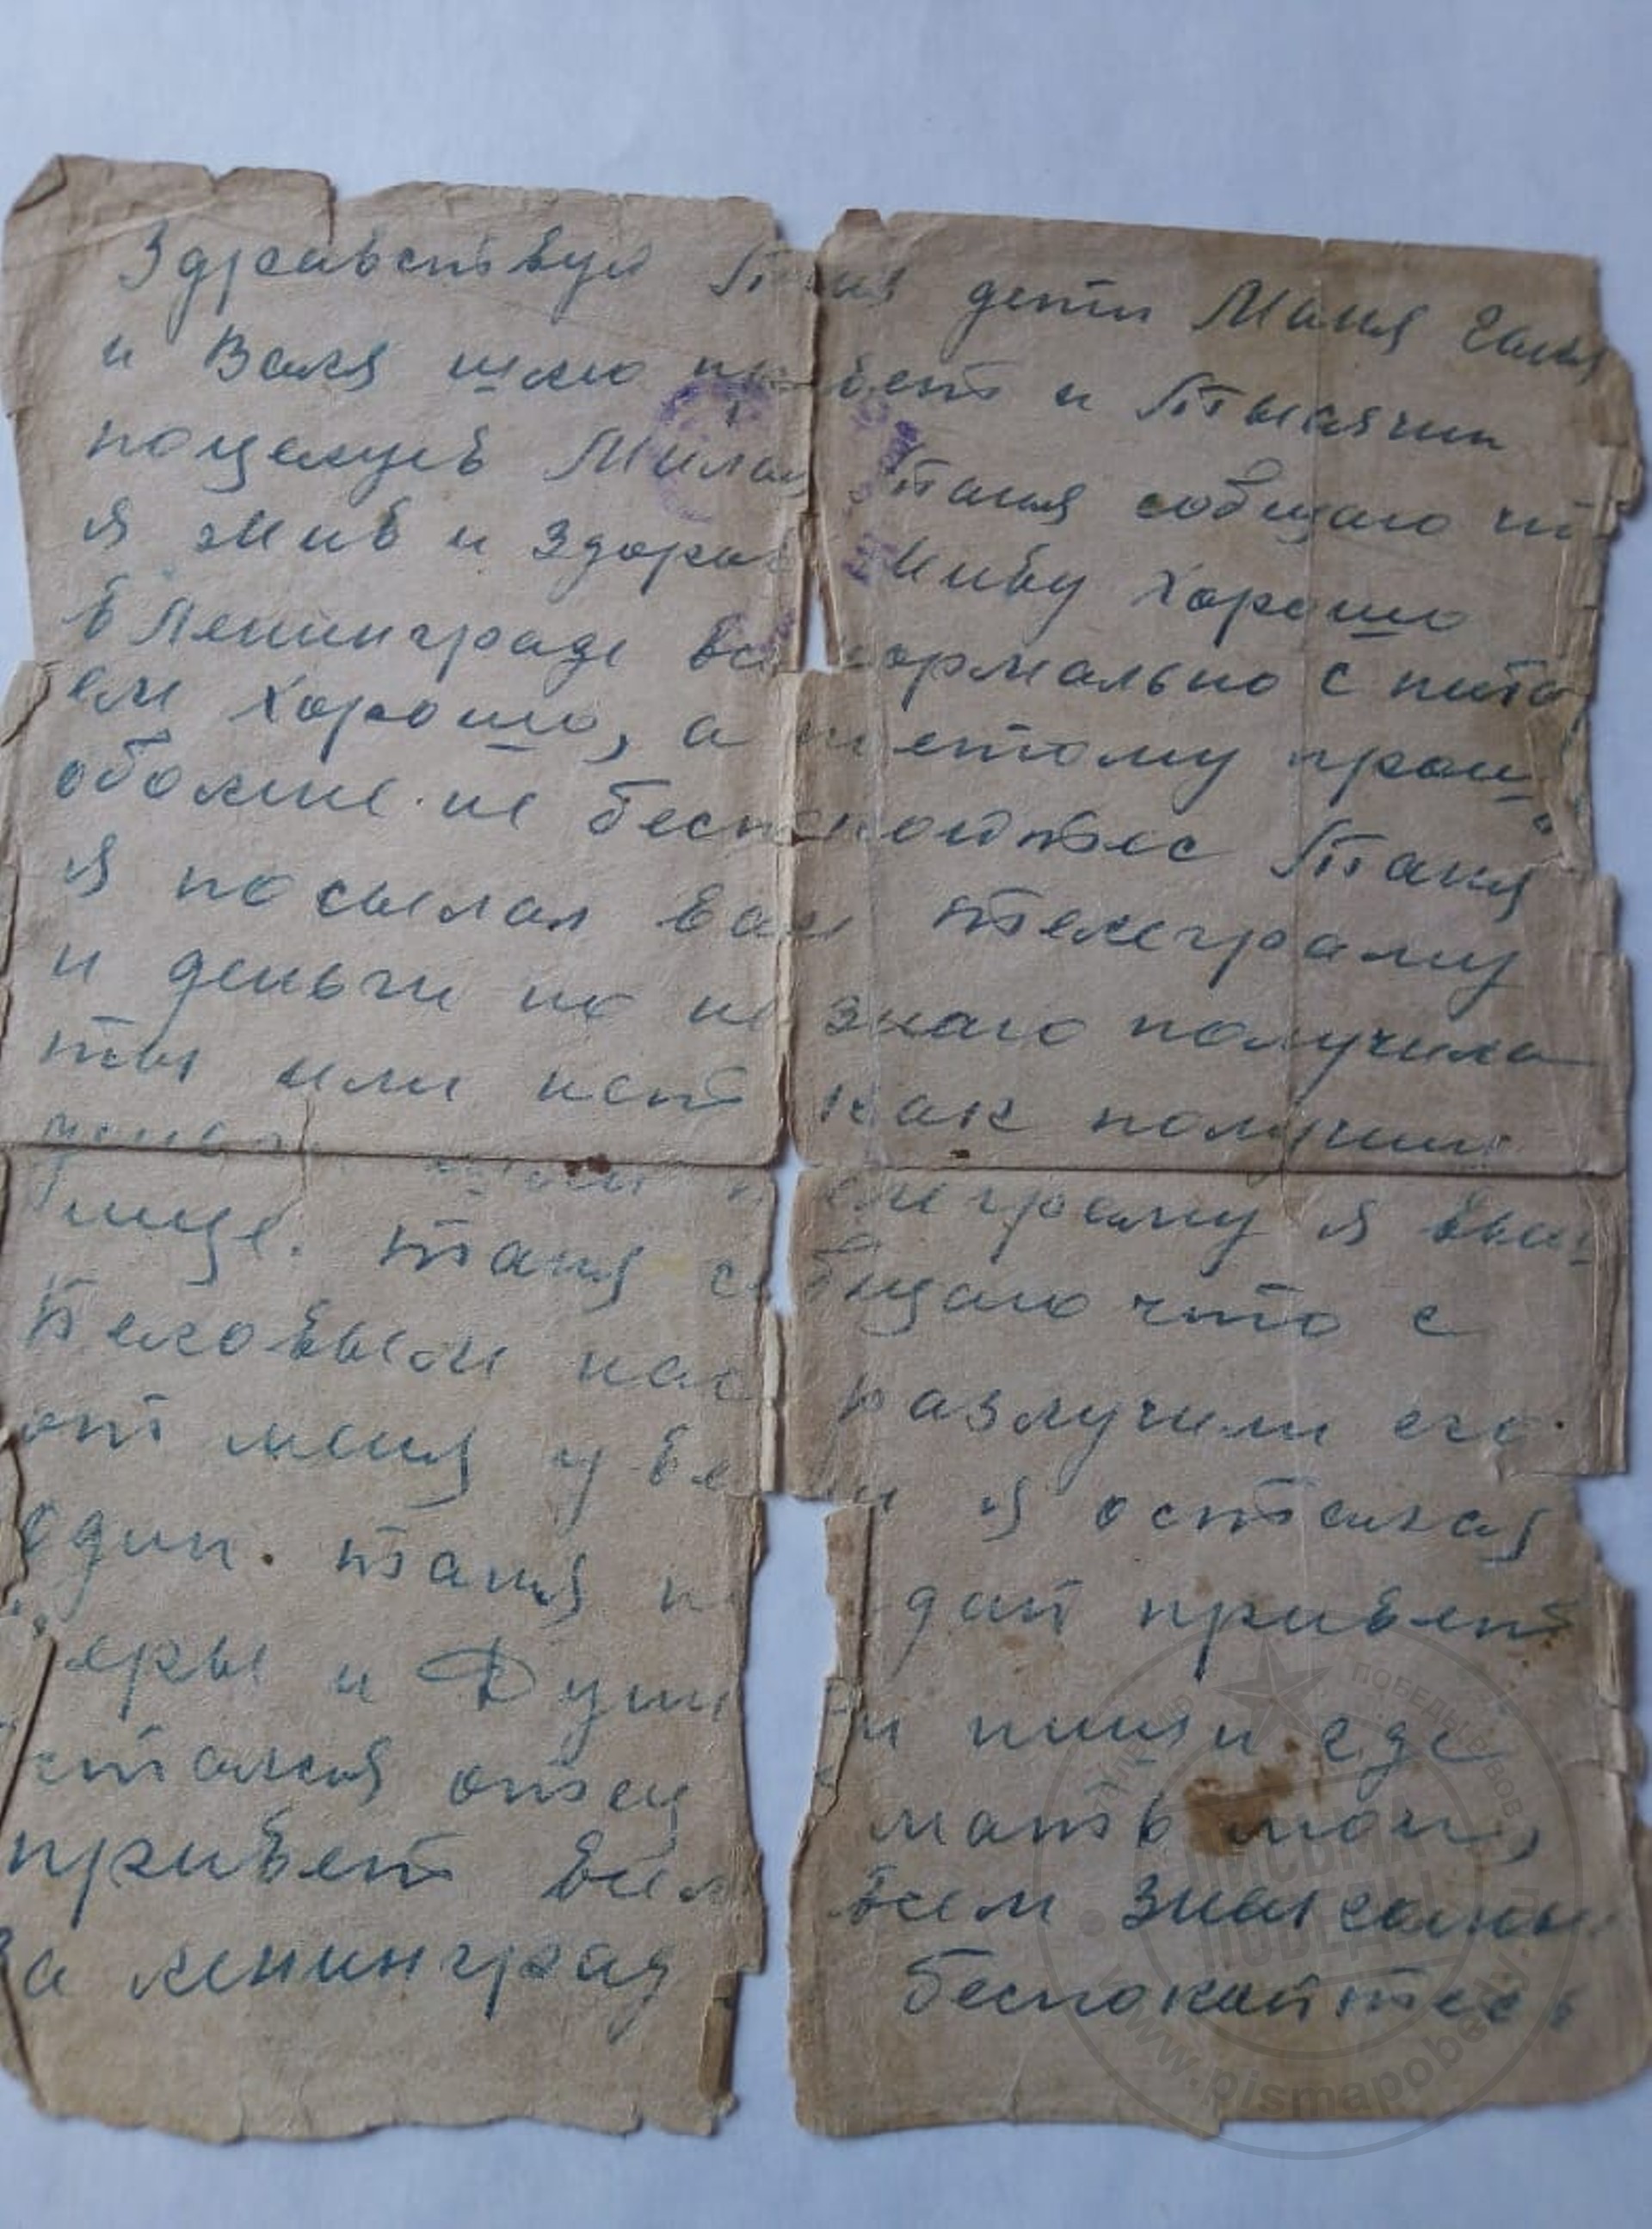 Здравствуй Таня дети Маня Галя
и Валя шлю привет и Тысячи
поцелуев Милая Таня собщаю что
я жив и здоров Живу Хорошо
в Ленинграде все нормально с пита
ем Хорошо, а поетому прошу
обомне не беспокойтес Таня
я посылал вам телеграму
и деньги но не знаю получила
ты или нет как получиш
телеграму я вы
шце. Таня собщаю что с
Беловым нас разлучили его
от меня увели я остался
один. Таня передай привет
и пиши где
отец мать мои,
привет всем всем знакомым
За ленинград беспокайтесь
ПИСЬМА
ПОБЕДЫ
www.pismapobedy.ru